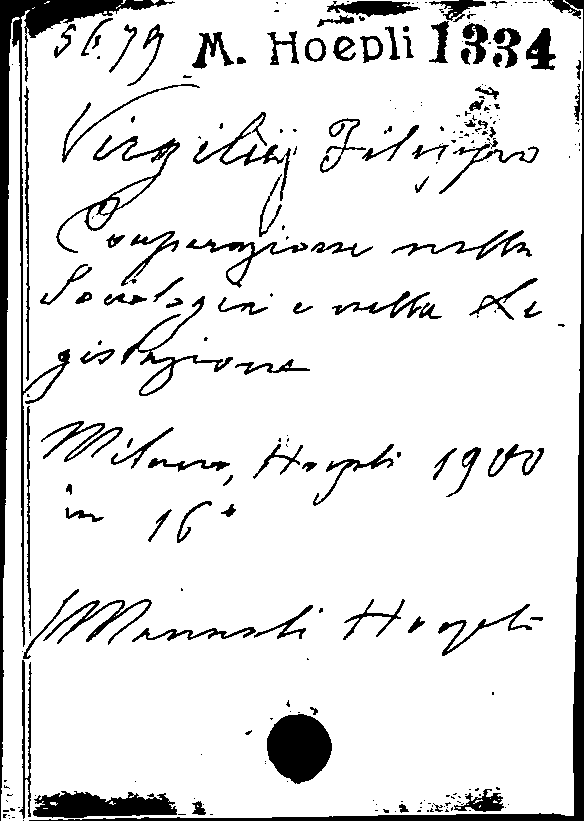 5679 M. Hoepli 1334
Virgilij Filippo
Couperazione nella
Sociologia e nella Le
gislazione
Milano, Hoepli 1900
in 16°
Manuali Hoepli